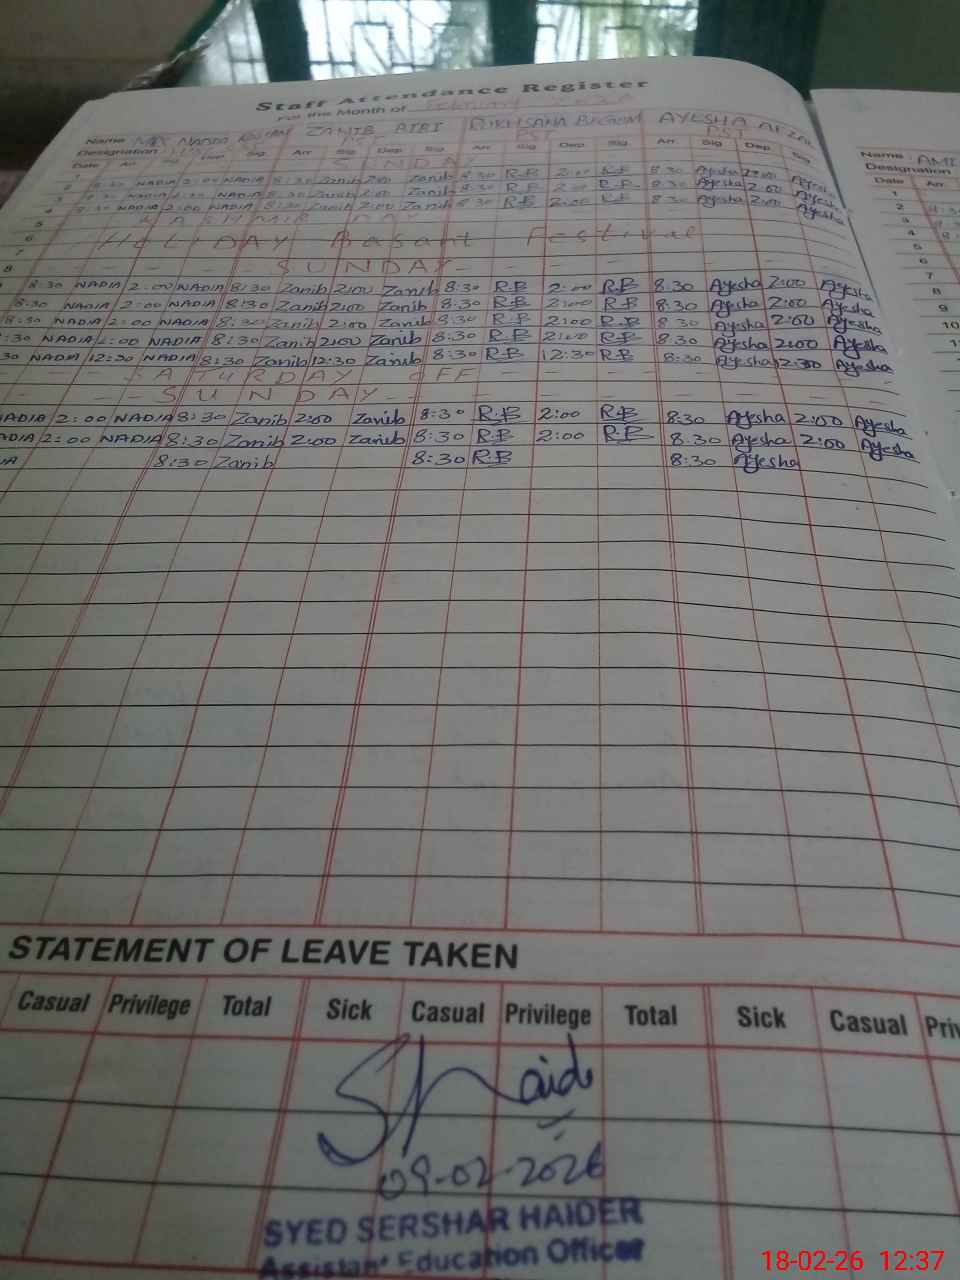 Staff Attendance Register
For the Month of February
Name NADIA ZANIB BIBI RUKHSANA BEGUM AYESHA AFZAL Name AMI
Designation PST PST Designation
Date Arr Sig Dep Sig Arr Sig Dep Sig Arr Sig Dep Sig Arr Sig Dep Sig Date Arr
1 SUNDAY 1
2 8:30 NADIA 2:00 NADIA 8:30 Zanib 2:00 Zanib 8:30 R.B 2:00 R.B 8:30 Ayesha 2:00 Ayesha 2
3 8:30 NADIA 2:00 NADIA 8:30 Zanib 2:00 Zanib 8:30 R.B 2:00 R.B 8:30 Ayesha 2:00 Ayesha 3
4 8:30 NADIA 2:00 NADIA 8:30 Zanib 2:00 Zanib 8:30 R.B 2:00 R.B 8:30 Ayesha 2:00 Ayesha 4
5 KASHMIR DAY 5
6 HOLIDAY Basant Festival 6
7 7
8 SUNDAY 8
8:30 NADIA 2:00 NADIA 8:30 Zanib 2:00 Zanib 8:30 R.B 2:00 R.B 8:30 Ayesha 2:00 Ayesha 9
8:30 NADIA 2:00 NADIA 8:30 Zanib 2:00 Zanib 8:30 R.B 2:00 R.B 8:30 Ayesha 2:00 Ayesha 10
8:30 NADIA 2:00 NADIA 8:30 Zanib 2:00 Zanib 8:30 R.B 2:00 R.B 8:30 Ayesha 2:00 Ayesha
:30 NADIA 2:00 NADIA 8:30 Zanib 2:00 Zanib 8:30 R.B 2:00 R.B 8:30 Ayesha 2:00 Ayesha
30 NADIA 12:30 NADIA 8:30 Zanib 12:30 Zanib 8:30 R.B 12:30 R.B 8:30 Ayesha 12:30 Ayesha
SATURDAY OFF
SUNDAY
NADIA 2:00 NADIA 8:30 Zanib 2:00 Zanib 8:30 R.B 2:00 R.B 8:30 Ayesha 2:00 Ayesha
ADIA 2:00 NADIA 8:30 Zanib 2:00 Zanib 8:30 R.B 2:00 R.B 8:30 Ayesha 2:00 Ayesha
IA 8:30 Zanib 8:30 R.B 8:30 Ayesha
STATEMENT OF LEAVE TAKEN
Casual Privilege Total Sick Casual Privilege Total Sick Casual Priv
09-02-2026
SYED SERSHAR HAIDER
Assistant Education Officer
18-02-26 12:37